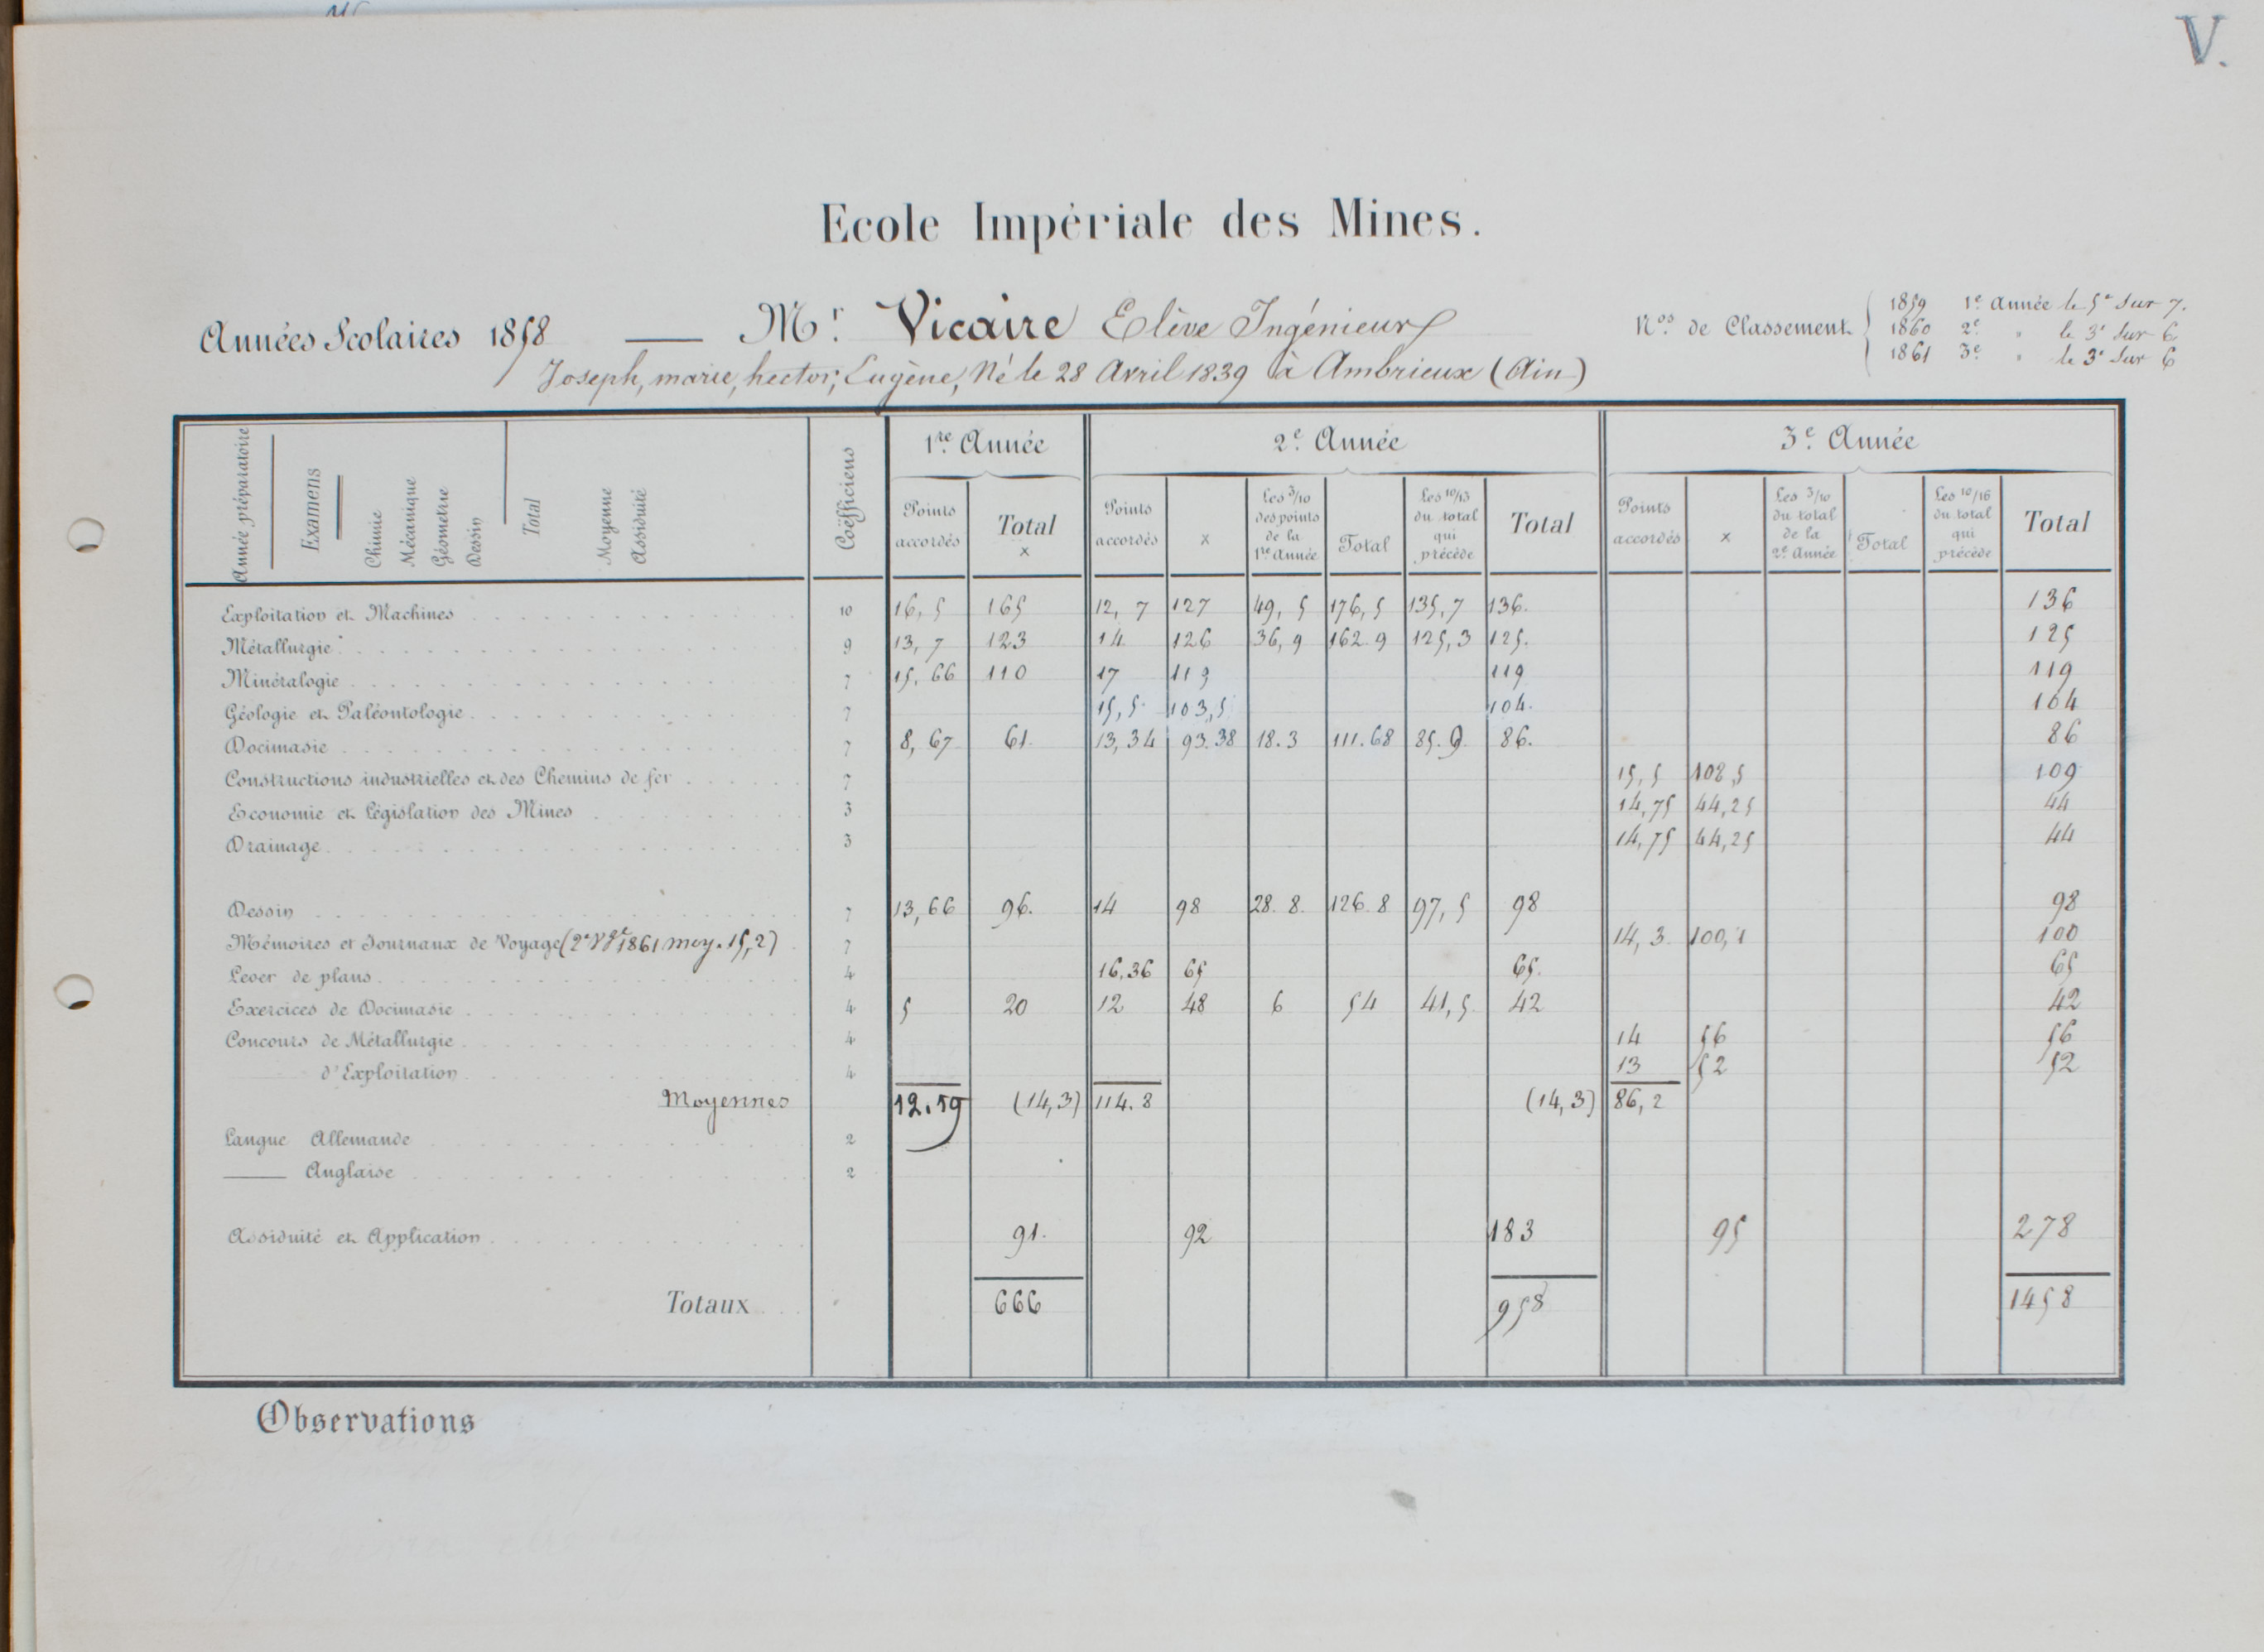 V.
Ecole Impériale des Mines.
Années Scolaires 1858 — Mr. Vicaire Elève Ingénieur
Joseph, marie, hector, Eugène, Né le 28 Avril 1839 à Ambrieux (Ain)
Nos de Classement
1859 1e année le 5e sur 7.
1860 2e " le 3e sur 6
1861 3e " le 3e sur 6
Année préparatoire Examens Chimie Mécanique Géométrie Dessin Total Moyenne Assiduité Coëfficiens
1re Année 2e Année 3e Année
Points accordés Total x Points accordés x Les 3/10 des points de la 1re Année Total Les 10/13 du total qui précède Total Points accordés x Les 3/10 du total de la 2e Année Total Les 10/16 du total qui précède Total
Exploitation et Machines 10 16,5 165 12,7 127 49,5 176,5 135,7 136. 136
Métallurgie 9 13,7 123 14 126 36,9 162.9 125,3 125. 125
Minéralogie 7 15,66 110 17 119 119 119
Géologie et Paléontologie 7 15,5 103,5 104. 104
Docimasie 7 8,67 61. 13,34 93.38 18.3 111.68 85.9 86. 86
Constructions industrielles et des Chemins de fer 7 15,5 108,5 109
Economie et Législation des Mines 3 14,75 44,25 44
Drainage 3 14,75 44,25 44
Dessin 7 13,66 96. 14 98 28.8. 126.8 97,5 98 98
Mémoires et Journaux de Voyage (2e Vge 1861 moy. 15,2) 7 14,3 100,1 100
Lever de plans 4 16,36 65 65. 65
Exercices de Docimasie 4 5 20 12 48 6 54 41,5 42 42
Concours de Métallurgie 4 14 56 56
— d'Exploitation 4 13 52 52
Moyennes 12.59 (14,3) 114.8 (14,3) 86,2
Langue Allemande 2
— Anglaise 2
Assiduité et Application 91. 92 183 95 278
Totaux 666 958 1458
Observations